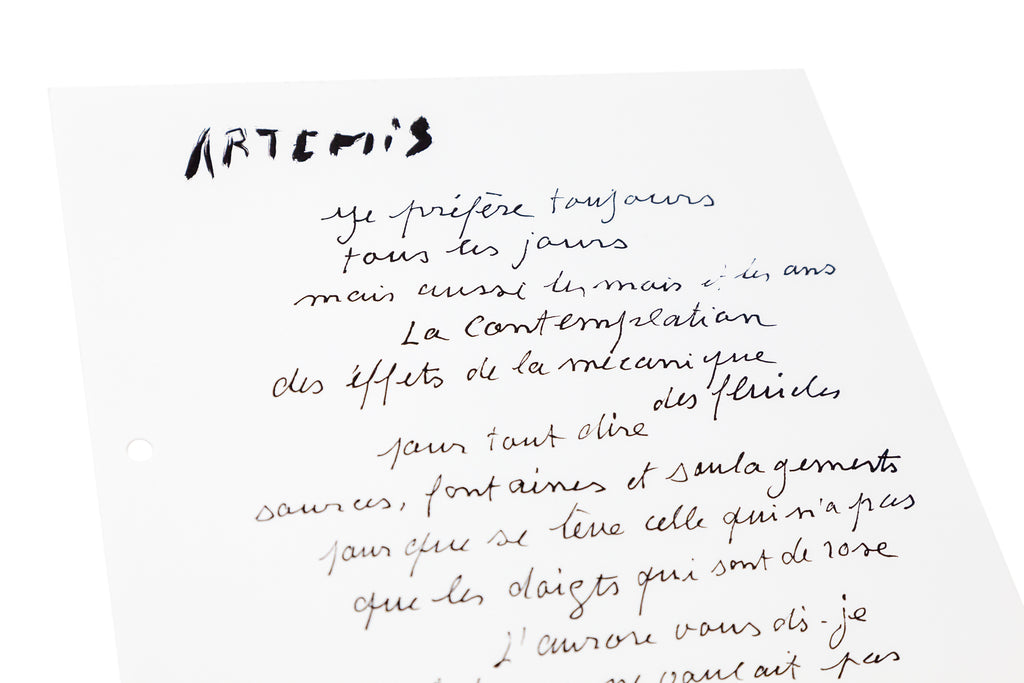 ARTEMiS
Je préfère toujours
tous les jours
mais aussi les mois et les ans
La Contemplation
des éffets de la mécanique
des fluides
pour tout dire
sources, fontaines et soulagements
pour que se lève celle qui n'a pas
que les doigts qui sont de rose
L'aurore vous dis-je
ne voulait pas